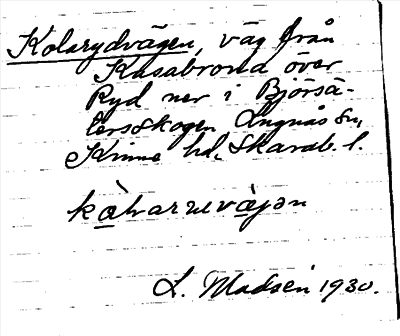 Kolarydvägen, väg från
Kasabrona över
Ryd ner i Björsä-
tersskogen Lugnås sn,
Kinne hd, Skarab. l.
kàlvarnevägən
L. Madsén 1930.